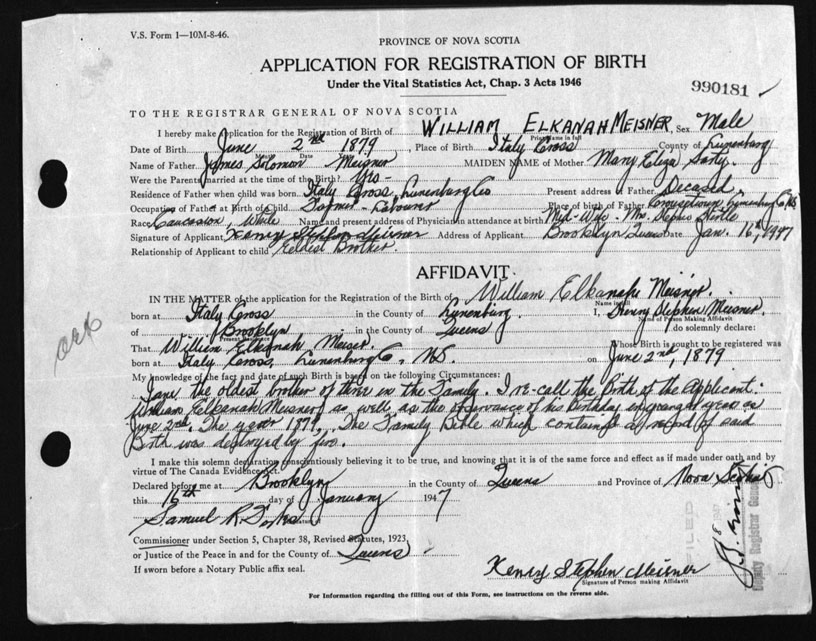 V.S. Form 1—10M-8-46.
PROVINCE OF NOVA SCOTIA
APPLICATION FOR REGISTRATION OF BIRTH
Under the Vital Statistics Act, Chap. 3 Acts 1946
990181
TO THE REGISTRAR GENERAL OF NOVA SCOTIA
I hereby make application for the Registration of Birth of WILLIAM ELKANAH MEISNER, Sex Male
Print Name in full
Date of Birth June 2nd 1879, Place of Birth Italy Cross County of Lunenburg
Month Date
Name of Father James Solomon Meisner MAIDEN NAME of Mother Mary Eliza
Were the Parents married at the time of the Birth? Yes-
Residence of Father when child was born. Italy Cross, Lunenburg Co Present address of Father Deceased
Occupation of Father at Birth of Child Farmer - Labourer Place of birth of Father Lunenburg Co NS
Race Caucasion, White Name and present address of Physician in attendance at birth Mid-Wife - Mrs
Signature of Applicant Henry Stephen Meisner Address of Applicant Brooklyn Queens Date Jan. 16th, 1947
Relationship of Applicant to child Eldest Brother.
AFFIDAVIT
IN THE MATTER of the application for the Registration of the Birth of William Elkanah Meisner.
Name in full
born at Italy Cross in the County of Lunenburg. I, Henry Stephen Meisner.
Name of Person Making Affidavit
of Brooklyn in the County of Queens do solemnly declare:
Present Residence
That William Elkanah Meisner Whose Birth is sought to be registered was
born at Italy Cross, Lunenburg Co, N.S. on June 2nd, 1879
My knowledge of the fact and date of such Birth is based on the following Circumstances:
I am the oldest brother of three in the Family. I re-call the Birth of the Applicant:
William Elkanah Meisner, as well as the observance of his Birthday in younger years as
June 2nd. The year 1879. The Family Bible which contained a record of said
Birth was destroyed by fire.
I make this solemn declaration conscientiously believing it to be true, and knowing that it is of the same force and effect as if made under oath and by
virtue of The Canada Evidence Act.
Declared before me at Brooklyn in the County of Queens and Province of Nova Scotia
this 16th day of January 1947
Samuel R.
Commissioner under Section 5, Chapter 38, Revised Statutes, 1923
or Justice of the Peace in and for the County of Queens
If sworn before a Notary Public affix seal.
Henry Stephen Meisner
Signature of Person making Affidavit
Deputy Registrar General
For Information regarding the filling out of this Form, see instructions on the reverse side.